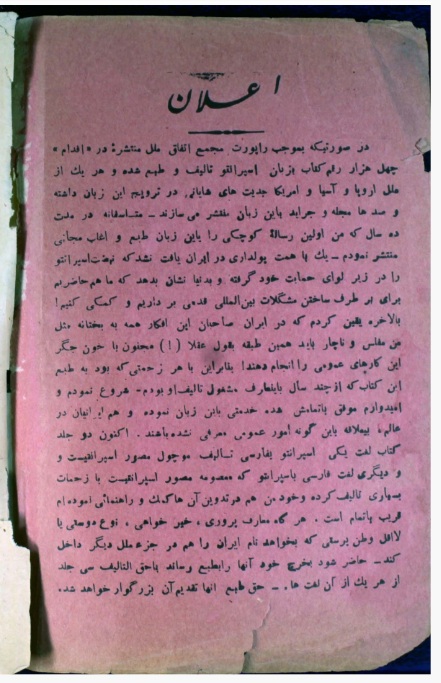 اعلان
در صورتیکه بموجب راپورت مجمع اتفاق ملل منتشرۀ در «اقدام»
چهل هزار رقم کتاب بزبان اسپرانتو تالیف و طبع شده و هر یک از
ملل اروپا و آسیا و امریکا جدیت های شایانی در ترویج این زبان داشته
و صد ها مجله و جراید باین زبان منتشر می سازند ـ متاسفانه در مدت
ده سال که من اولین رسالۀ کوچکی را باین زبان طبع و اغلب مجانی
منتشر نمودم ـ یک با همت پولداری در ایران یافت نشد که نهضت اسپرانتو
را در زیر لوای حمایت خود گرفته و بدنیا نشان بدهد که ما هم حاضریم
برای بر طرف ساختن مشکلات بین‌المللی قدمی بر داریم و کمکی کنیم!
بالاخره یقین کردم که در ایران صاحبان این افکار همه به بختانه مثل
من مفلس و ناچار باید همین طبقه بقول عقلا (!) مجنون با خون جگر
این کارهای عمومی را انجام دهند! بنابراین با هر زحمتی که بود به طبع
این کتاب که از چند سال باینطرف مشغول تالیف او بودم ـ شروع نمودم و
امیدوارم موفق باتمامش شده خدمتی باین زبان نموده و هم ایرانیان در
عالم بعلاقه باین گونه امور عمومی معرفی شده باشند. اکنون دو جلد
کتاب لغت یکی اسپرانتو بفارسی تالیف موچول مصور اسپرانتیست و
و دیگری لغت فارسی باسپرانتو که معصومه مصور اسپرانتیست با زحمات
بسیاری تالیف کرده و خود من هم در تدوین آن ها کمک و راهنمائی نموده ام
قریب باتمام است. هر گاه معارف پروری، خیر خواهی، نوع دوستی یا
لااقل وطن پرستی که بخواهد نام ایران را هم در جزء ملل دیگر داخل
کند ـ حاضر شود بخرج خود آنها را بطبع رساند با حق التالیف سی جلد
از هر یک از آن لغت ها. ـ حق طبع آنها تقدیم آن بزرگوار خواهد شد.